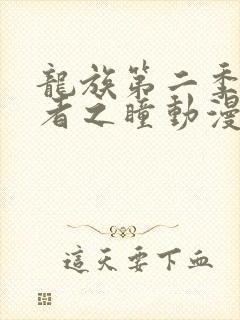 龍族第二季
者之瞳動漫
這天要下血